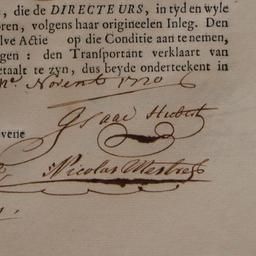 , die de DIRECTEURS, in tyd en wyle
oren, volgens haar origineelen Inleg. Den
lve Actie op die Conditie aan te nemen,
gen : den Transportant verklaart van
etaalt te zyn, dus beyde onderteekent in
Novemb 1720
Isaac Hubert
vene
Nicolas Mestre